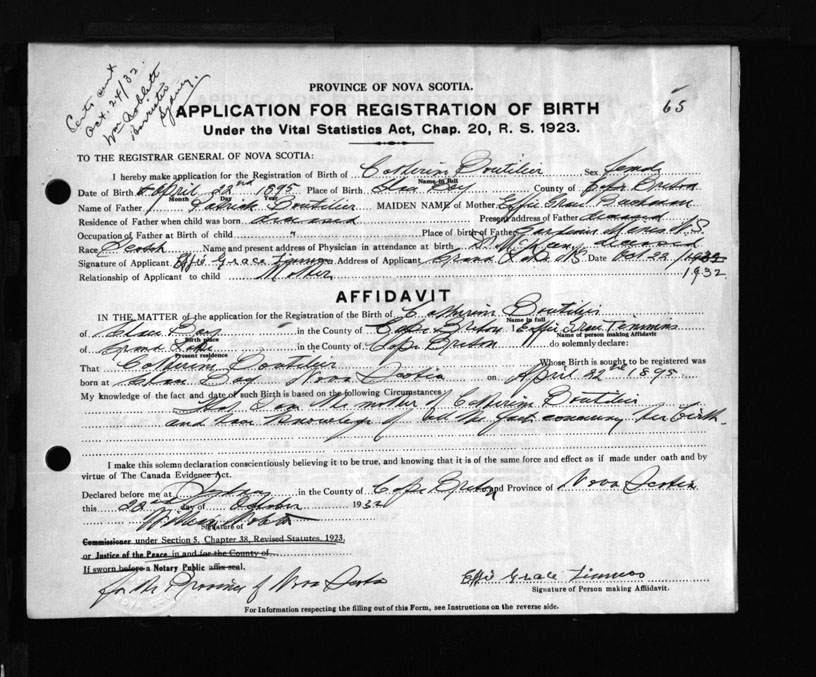 Certs sent
Oct. 24/32
Wm Roblett
Barrister
Sydney
65
PROVINCE OF NOVA SCOTIA.
APPLICATION FOR REGISTRATION OF BIRTH
Under the Vital Statistics Act, Chap. 20, R. S. 1923.
TO THE REGISTRAR GENERAL OF NOVA SCOTIA:
I hereby make application for the Registration of Birth of Catherine Boutilier Sex Female
Name in full
Date of Birth April 22nd 1895 Place of Birth Glace Bay County of Cape Breton
Month Day Year
Name of Father Patrick Boutilier MAIDEN NAME of Mother Effie Grace Buchanan
Residence of Father when child was born deceased Present address of Father deceased
Occupation of Father at Birth of child " Place of birth of Father Gardiner Mines N.S.
Race Scotch Name and present address of Physician in attendance at birth deceased
Signature of Applicant Effie Grace Timmons Address of Applicant Grand Lake NS Date Oct 22 / 1932
1932
Relationship of Applicant to child Mother
AFFIDAVIT
IN THE MATTER of the application for the Registration of the Birth of Catherine Boutilier
Name in full
of Glace Bay in the County of Cape Breton I Effie Grace Timmins
Birth place Name of person making Affidavit
of Grand Lake in the County of Cape Breton do solemnly declare:
Present residence
That Catherine Boutilier Whose Birth is sought to be registered was
born at Glace Bay Nova Scotia on April 22nd 1895.
My knowledge of the fact and date of such Birth is based on the following Circumstances:
That I am the mother of Catherine Boutilier
and have knowledge of all the facts concerning her birth.
I make this solemn declaration conscientiously believing it to be true, and knowing that it is of the same force and effect as if made under oath and by
virtue of The Canada Evidence Act.
Declared before me at Sydney in the County of Cape Breton and Province of Nova Scotia
this 22nd day of October 1932
Signature of
Commissioner under Section 5, Chapter 38, Revised Statutes, 1923,
or Justice of the Peace in and for the County of
If sworn before a Notary Public affix seal.
for the Province of Nova Scotia Effie Grace Timmons
Signature of Person making Affidavit.
For Information respecting the filling out of this Form, see Instructions on the reverse side.